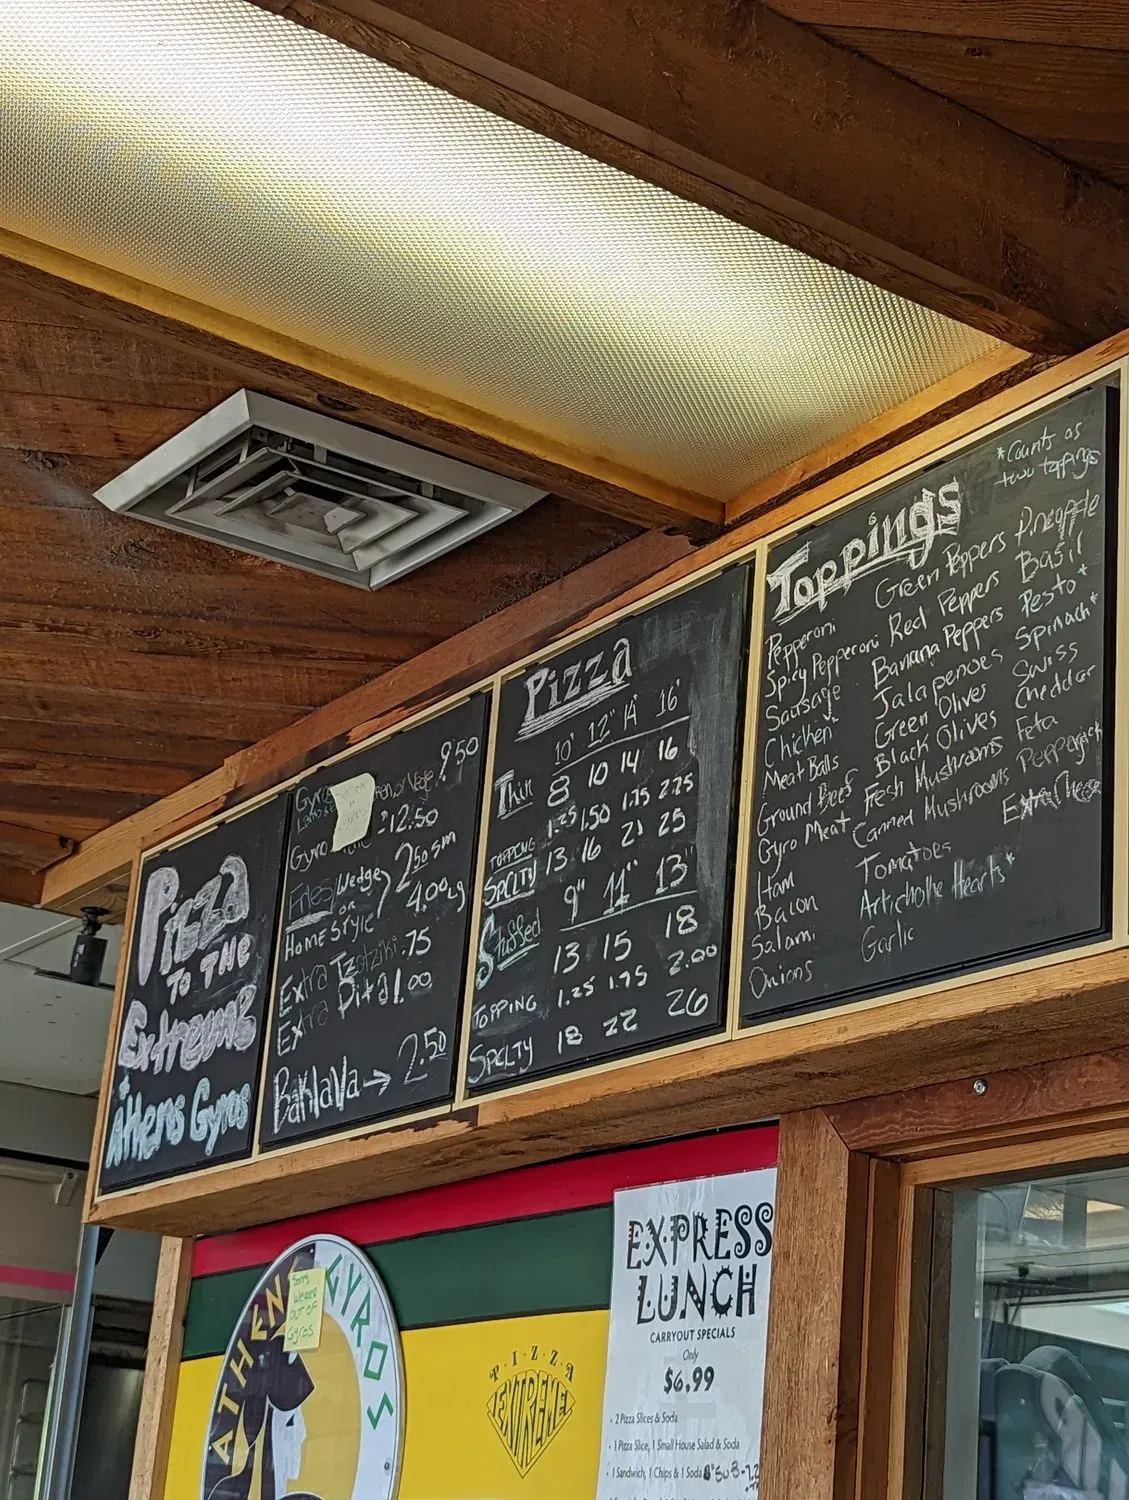 Pizza
TO THE
Extreme
+
Athens Gyros
Gyro
9.50
Gyro
12.50
Fries/Wedge
or
HOMESTYLE
2.50 sm
4.00 Lg
Extra Tzatziki .75
Extra Pita 1.00
Baklava → 2.50
Pizza
10" 12" 14" 16"
Thin 8 10 14 16
TOPPING 1.25 1.50 1.75 2.25
SPCLTY 13 16 21 25
Stuffed 9" 11" 13"
13 15 18
TOPPING 1.25 1.75 2.00
SPCLTY 18 22 26
Toppings
*Counts as
two toppings
Pepperoni
Spicy Pepperoni
Sausage
Chicken
Meat Balls
Ground Beef
Gyro Meat
Ham
Bacon
Salami
Onions
Green Peppers
Red Peppers
Banana Peppers
Jalapenoes
Green Olives
Black Olives
Fresh Mushrooms
Canned Mushrooms
Tomatoes
Artichoke Hearts*
Garlic
Pineapple
Basil
Pesto*
Spinach*
Swiss
Cheddar
Feta
Pepperjack
Extra Cheese
ATHENS GYROS
Sorry
We are
OUT OF
Gyros
PIZZA
EXTREME!
EXPRESS
LUNCH
CARRYOUT SPECIALS
Only
$6.99
• 2 Pizza Slices & Soda
• 1 Pizza Slice, 1 Small House Salad & Soda
• 1 Sandwich, 1 Chips & 1 Soda